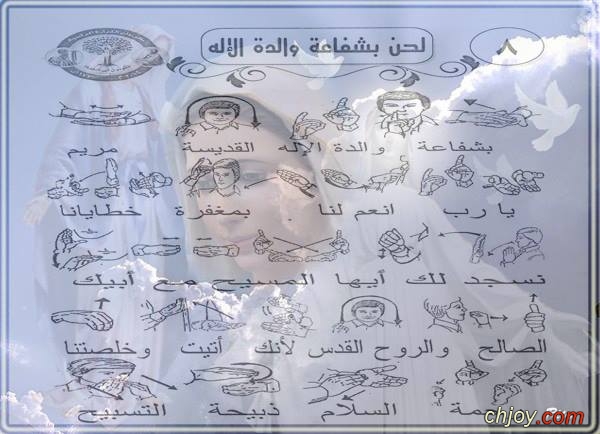 ٨
لحن بشفاعة والدة الإله
بشفاعة والدة الإله القديسة مريم
يارب انعم لنا بمغفرة خطايانا
نسجد لك أيها المسيح مع أبيك
الصالح والروح القدس لأنك أتيت وخلصتنا
السلام ذبيحة التسبيح
chjoy.com